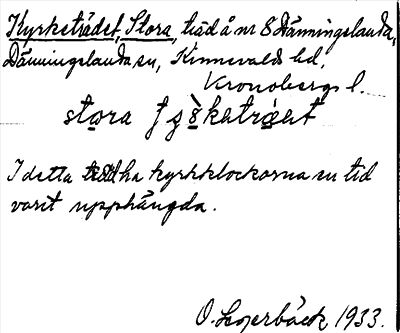 Kyrketrädet, Stora, träd å nr 8 Dänningelanda,
Dänningelanda sn, Kinnevalds hd,
Kronobergs l.
stora
I detta träd ha kyrkklockorna en tid
varit upphängda.
O. Lagerbäck 1933.